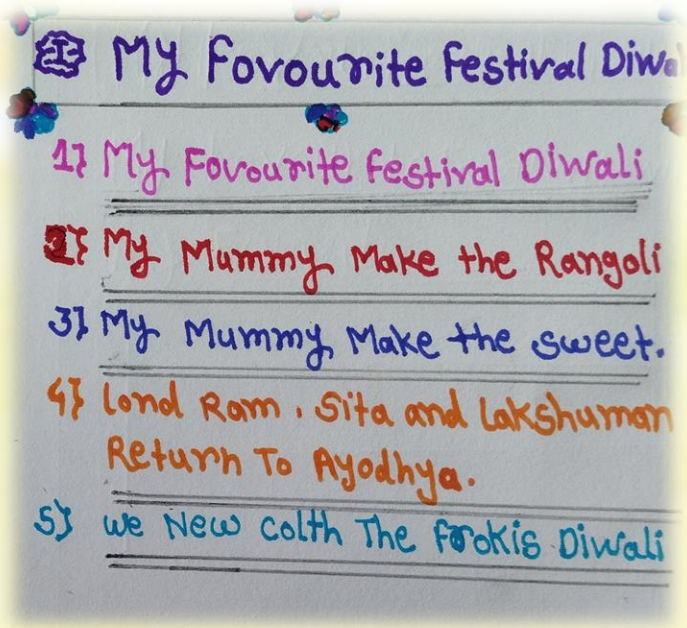 I My Fovourite Festival Diwa
1} My Fovourite Festival Diwali
2} My Mummy Make the Rangoli
3} My Mummy Make the sweet.
4} lond Ram, Sita and Lakshuman
Return To Ayodhya.
5} we New Colth The frokis Diwali